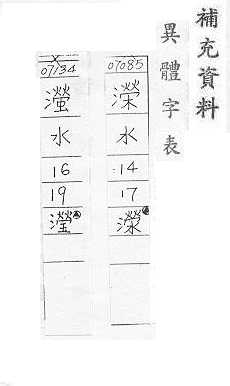 補充資料
異體字表
07085
濚
水
14
17
濴
07134
水
16
19
瀅